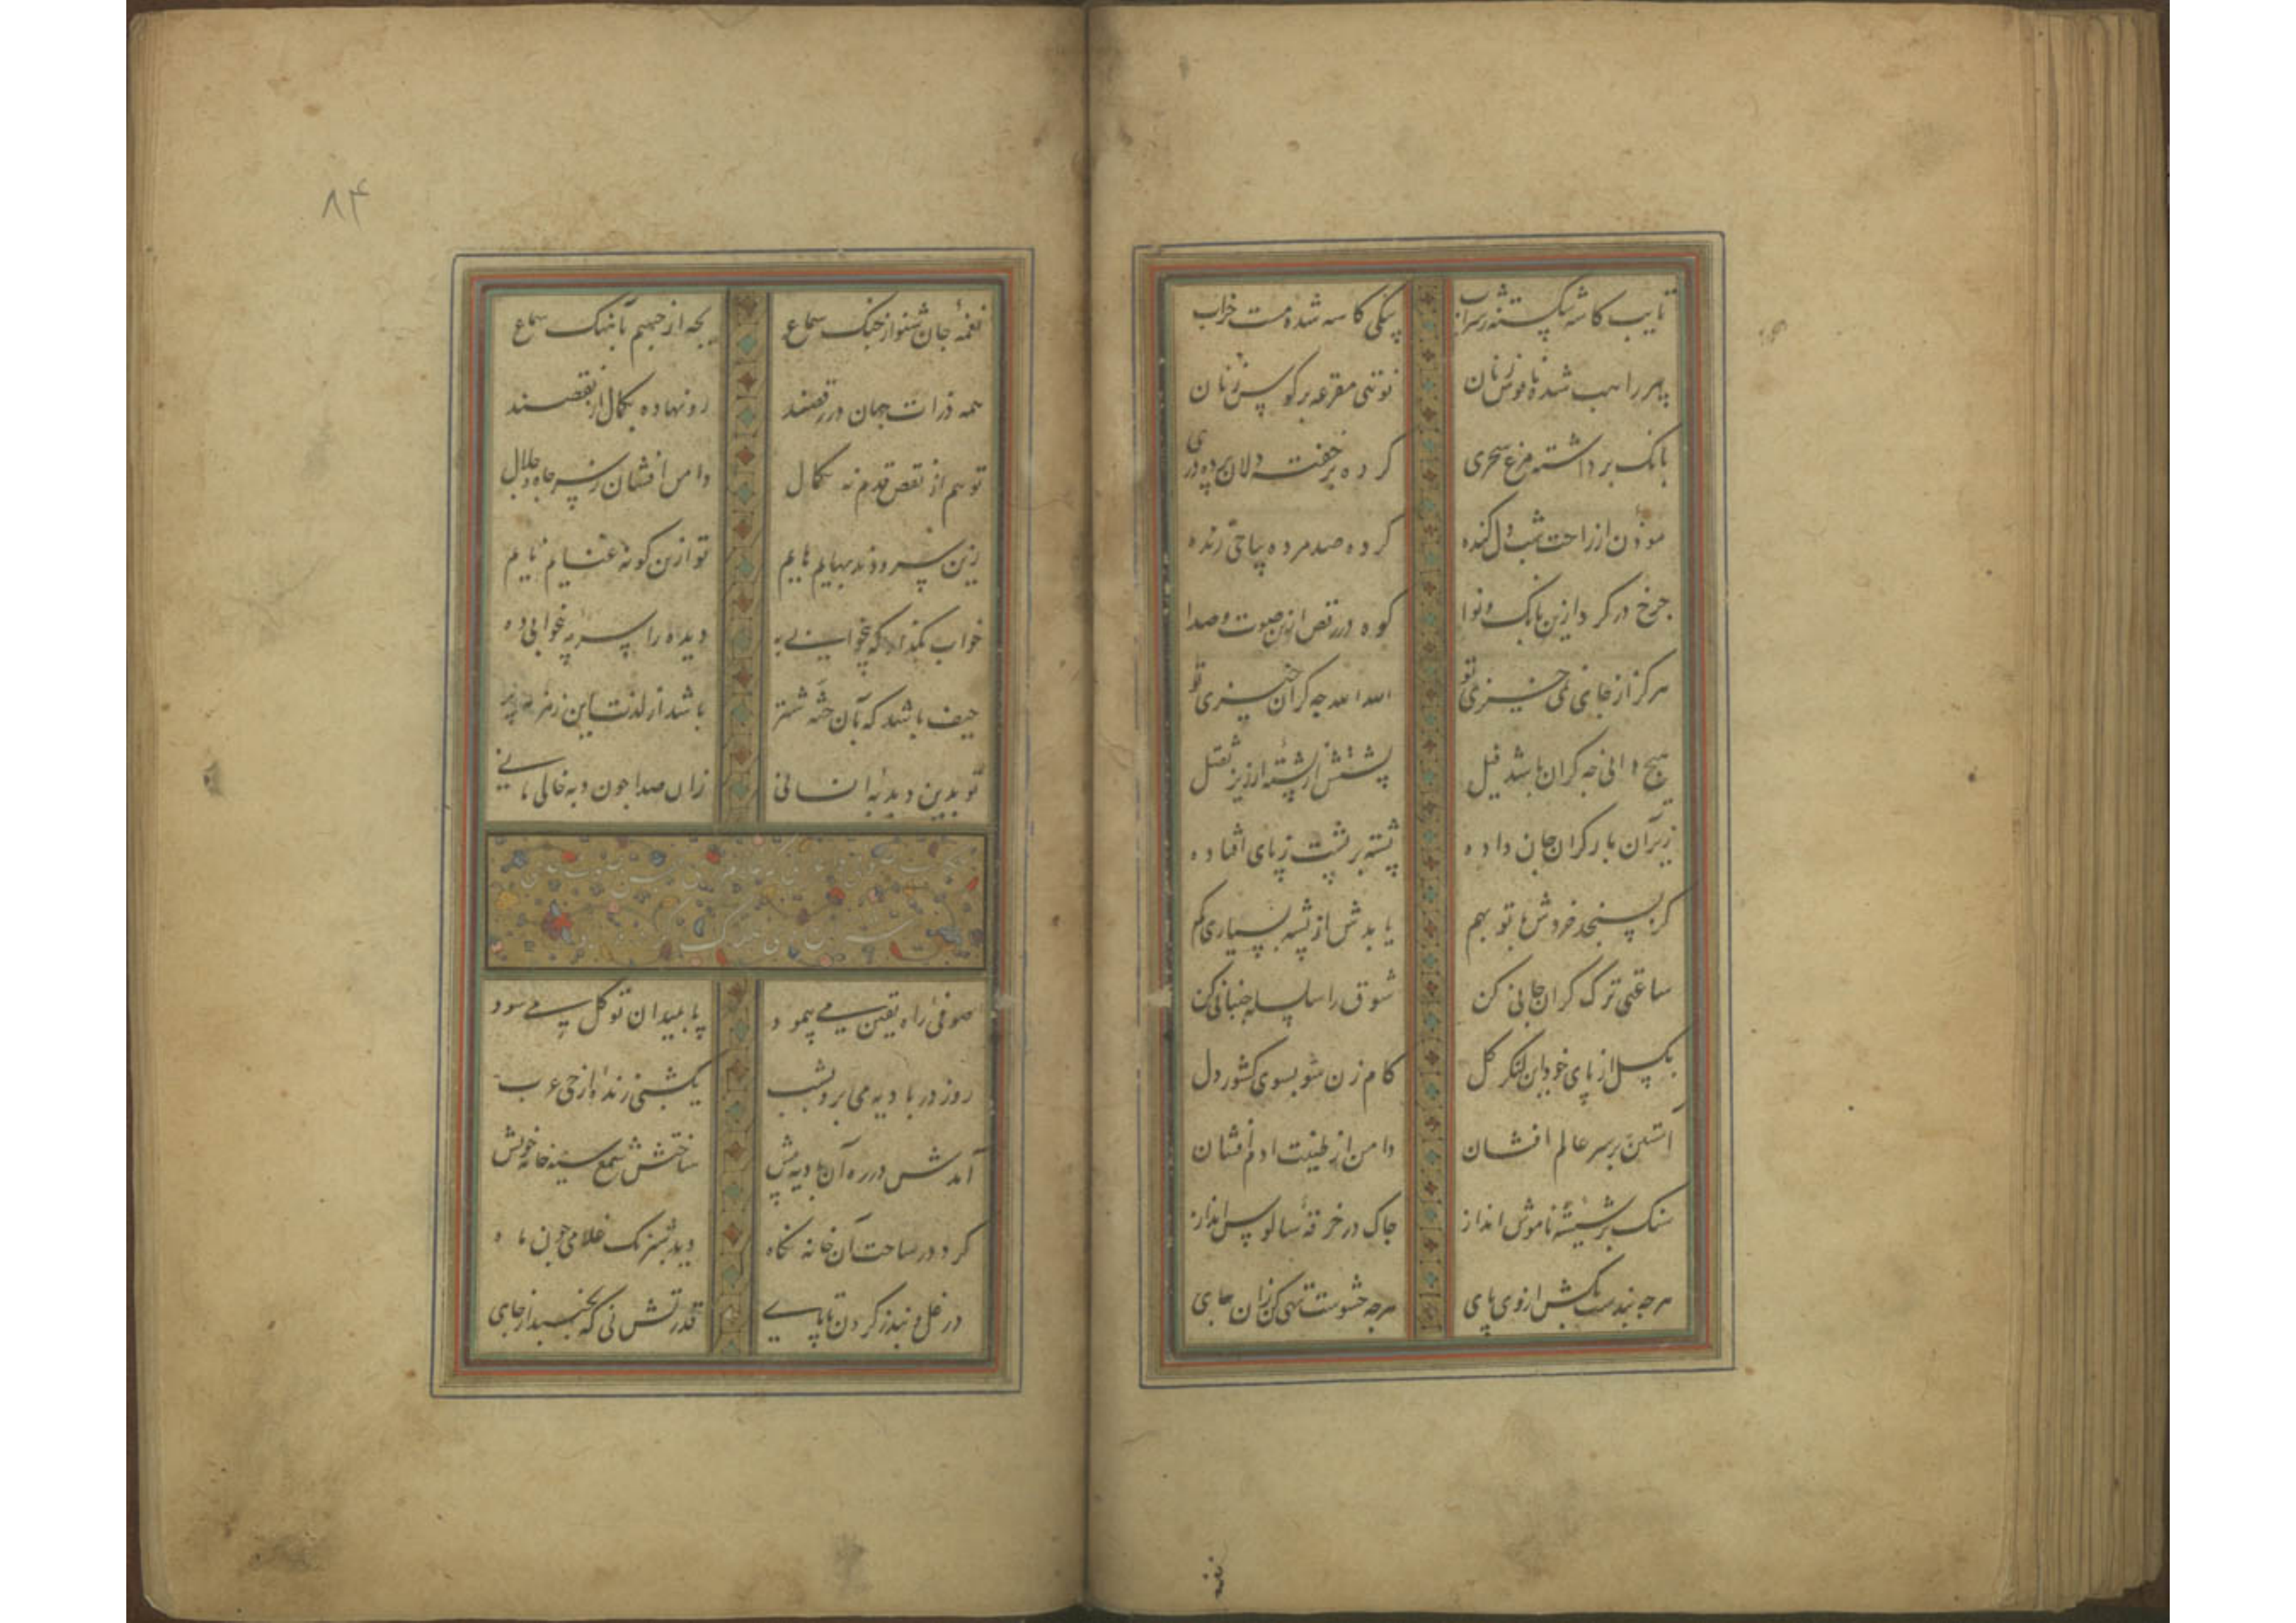 تایب کاسه شکسته ز شراب
بیکی کاسه شده مست خراب
پیر راهب شده ناقوس زنان
نوبتی مقرعه بر کوس زنان
بانک برداشته مرغ سحری
کرده بر خفته دلان پرده دری
موذن از راحت شب دل کنده
کرده صد مرده بیاحی زنده
جرخ در کرد ازین بانک و نوا
کوه در رقص ازین صوت و صدا
هرکز از جای نمی خیزی تو
الله الله جه کران خیزی تو
هیج دانی جه کران باشد فیل
پشتش از پشته ارزیز ثقیل
زیر آن بار کران جان داده
پشته بر پشت ز پای افتاده
کر بسنجد خردش با تو بهم
یابدش از پشه بسیاری کم
ساعتی ترک کران جانی کن
شوق را سلسله جنبانی کن
بکسل از پای خود این لنکر کل
کام زن شو بسوی کشور دل
آستین بر سر عالم افشان
دامن از طینت آدم افشان
سنک بر شیشه ناموس انداز
جاک در خرقه سالوس انداز
هرجه بندست بکش از وی پای
هرجه حشوست تهی کن زان جای
۸۴
نغمه جان شنو از جنک سماع
بجه از جسم بآهنک سماع
همه ذرات جهان در رقصند
رو نهاده بکمال از نقصند
تو هم از نقص قدم نه بکمال
دامن افشان ز سر جاه و جلال
خواب بکذار که بیخوابی به
دیده را سرمه بیخوابی ده
حیف باشد که بآن جثه شتر
باشد از لذت این زمزمه پر
تو بدین دبدبه انسانی
زان صدا جون دبه خالی مانی
صوفی راه یقین می پیمود
پا بمیدان توکل می سود
روز در بادیه می برد بشب
یکشبی زنده از حی عرب
آمدش در ره آن بادیه پیش
ساختش شمع سیه خانه خویش
کرد در ساحت آن خانه نکاه
دید بسترک غلامی جون ماه
در غل و بند ز کردن تا پای
قدرتش نی که بجنبد از جای